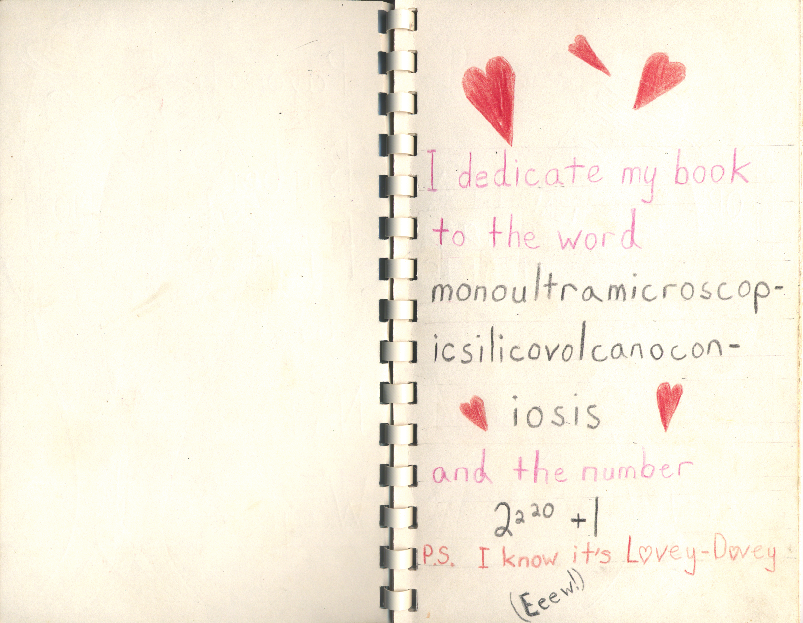 I dedicate my book
to the word
monoultramicroscop-
icsilicovolcanocon-
iosis
and the number
2²²⁰ +1
P.S. I know it's L♡vey-D♡vey
(Eeew!)